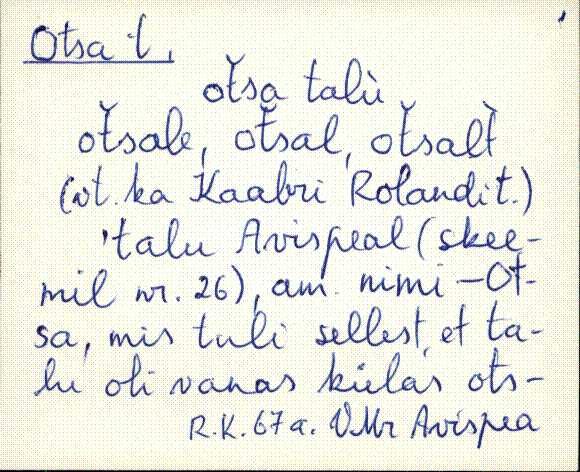 Otsa t.
oťsa talù
oťsale, oťsal, oťsalt̀
(vt. ka Kaabri Rolandi t.)
'talu Avispeal (skee-
mil nr. 26), am. nimi – Ot-
sa, mis tuli sellest, et ta-
lu oli vanas külas ots-
R.K. 67a. VMr Avispea